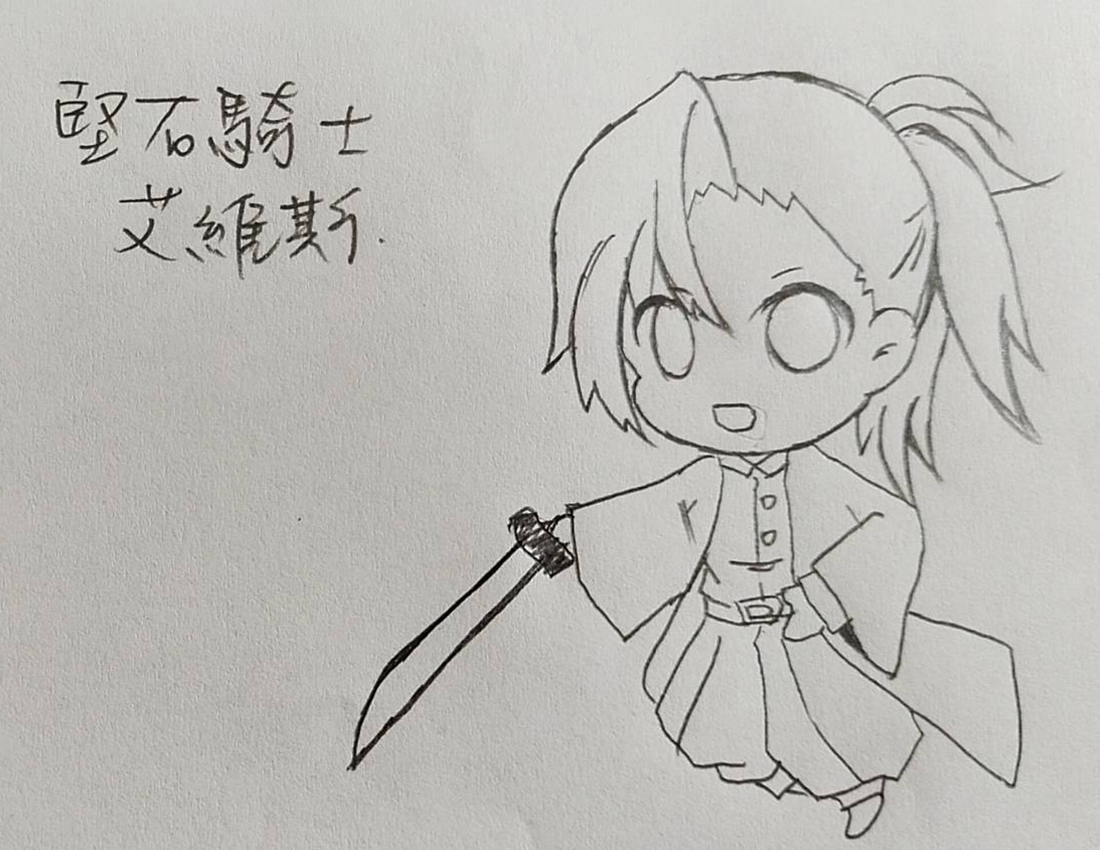 堅石騎士
艾維斯.